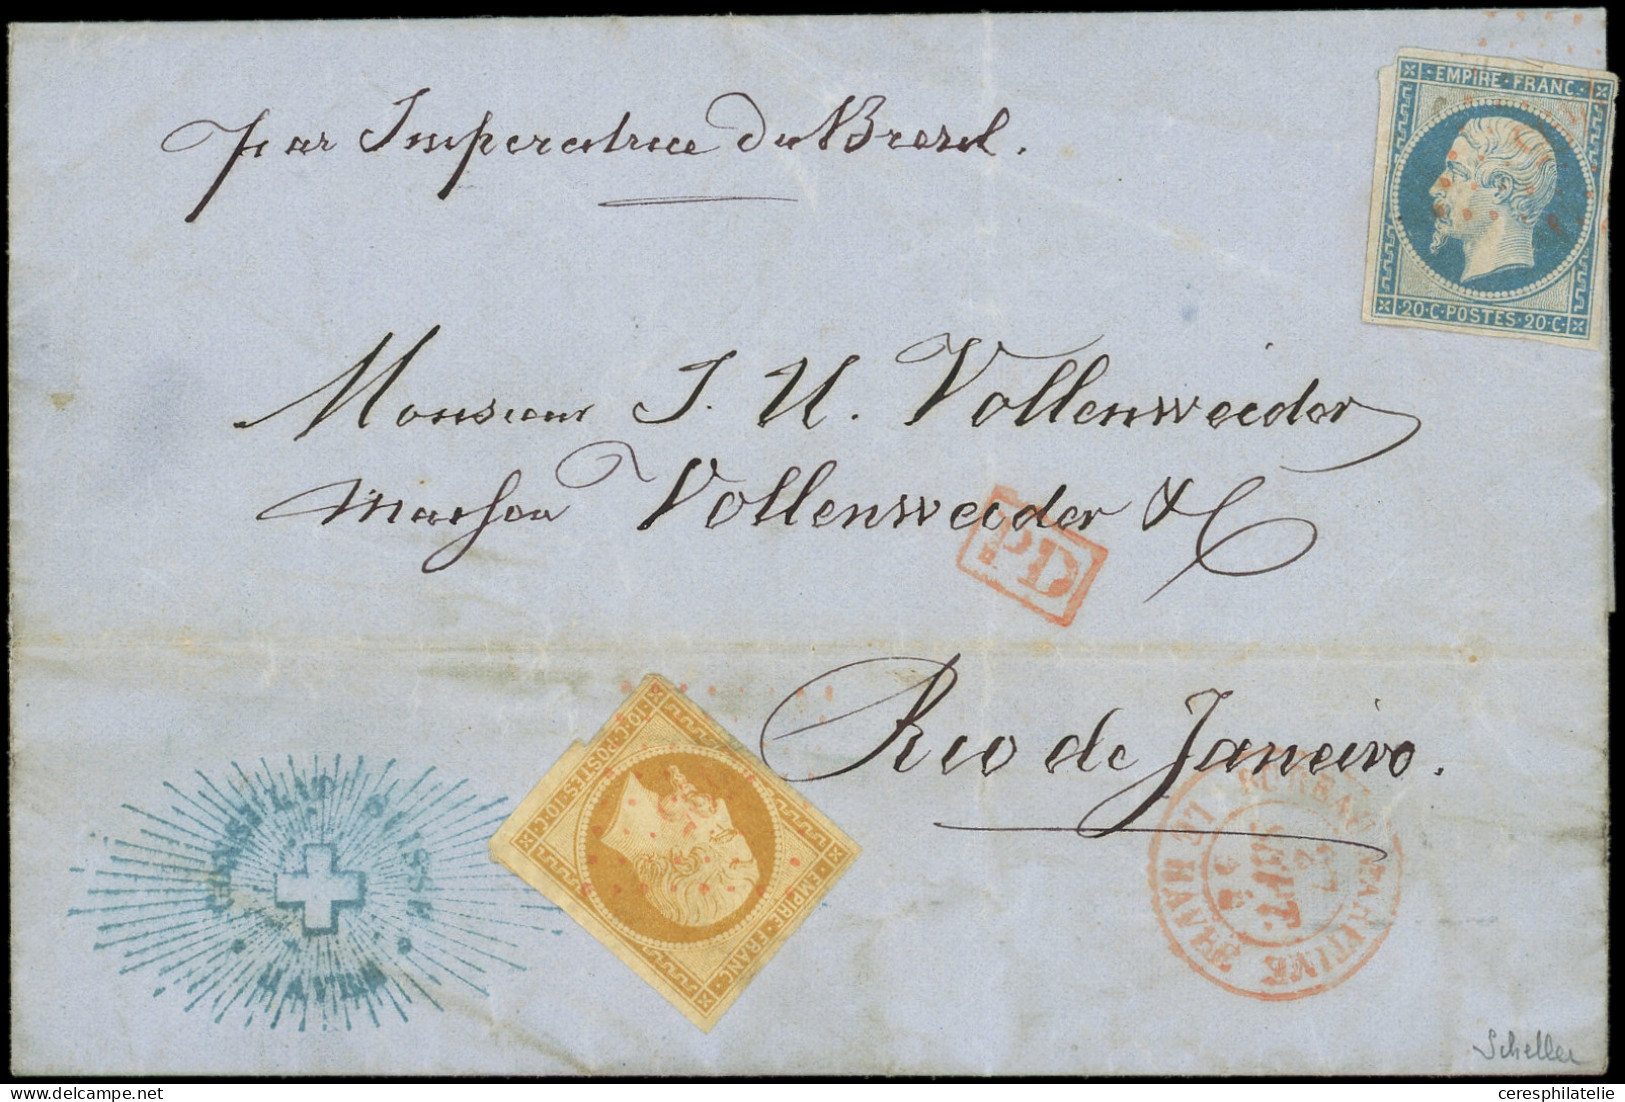 par Imperatrice du Bresil.
EMPIRE · FRANC ·
20 · C · POSTES · 20 · C ·
Monsieur J. U. Vollenweider
maison Vollenweider & C
PD
Rio de Janeiro.
10 · C · POSTES · 10 · C ·
EMPIRE · FRANC ·
CONSULAT SUISSE
HAVRE
BUREAU MARITIME
SEPT.
LE HAVRE
Scheller
ceresphilatelie